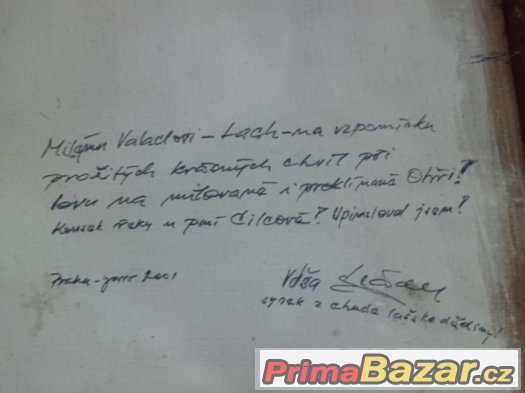 Milému Valadovi - Lach - na vzpomínku
prožitých krásných chvil při
lovu na milovaná i proklínaná Otří!
Kousek řeky u paní Cilcové! Upimloval jsem!
Praha - 2001
Váša
synek z chudé lašské dědiny!
PrimaBazar.cz